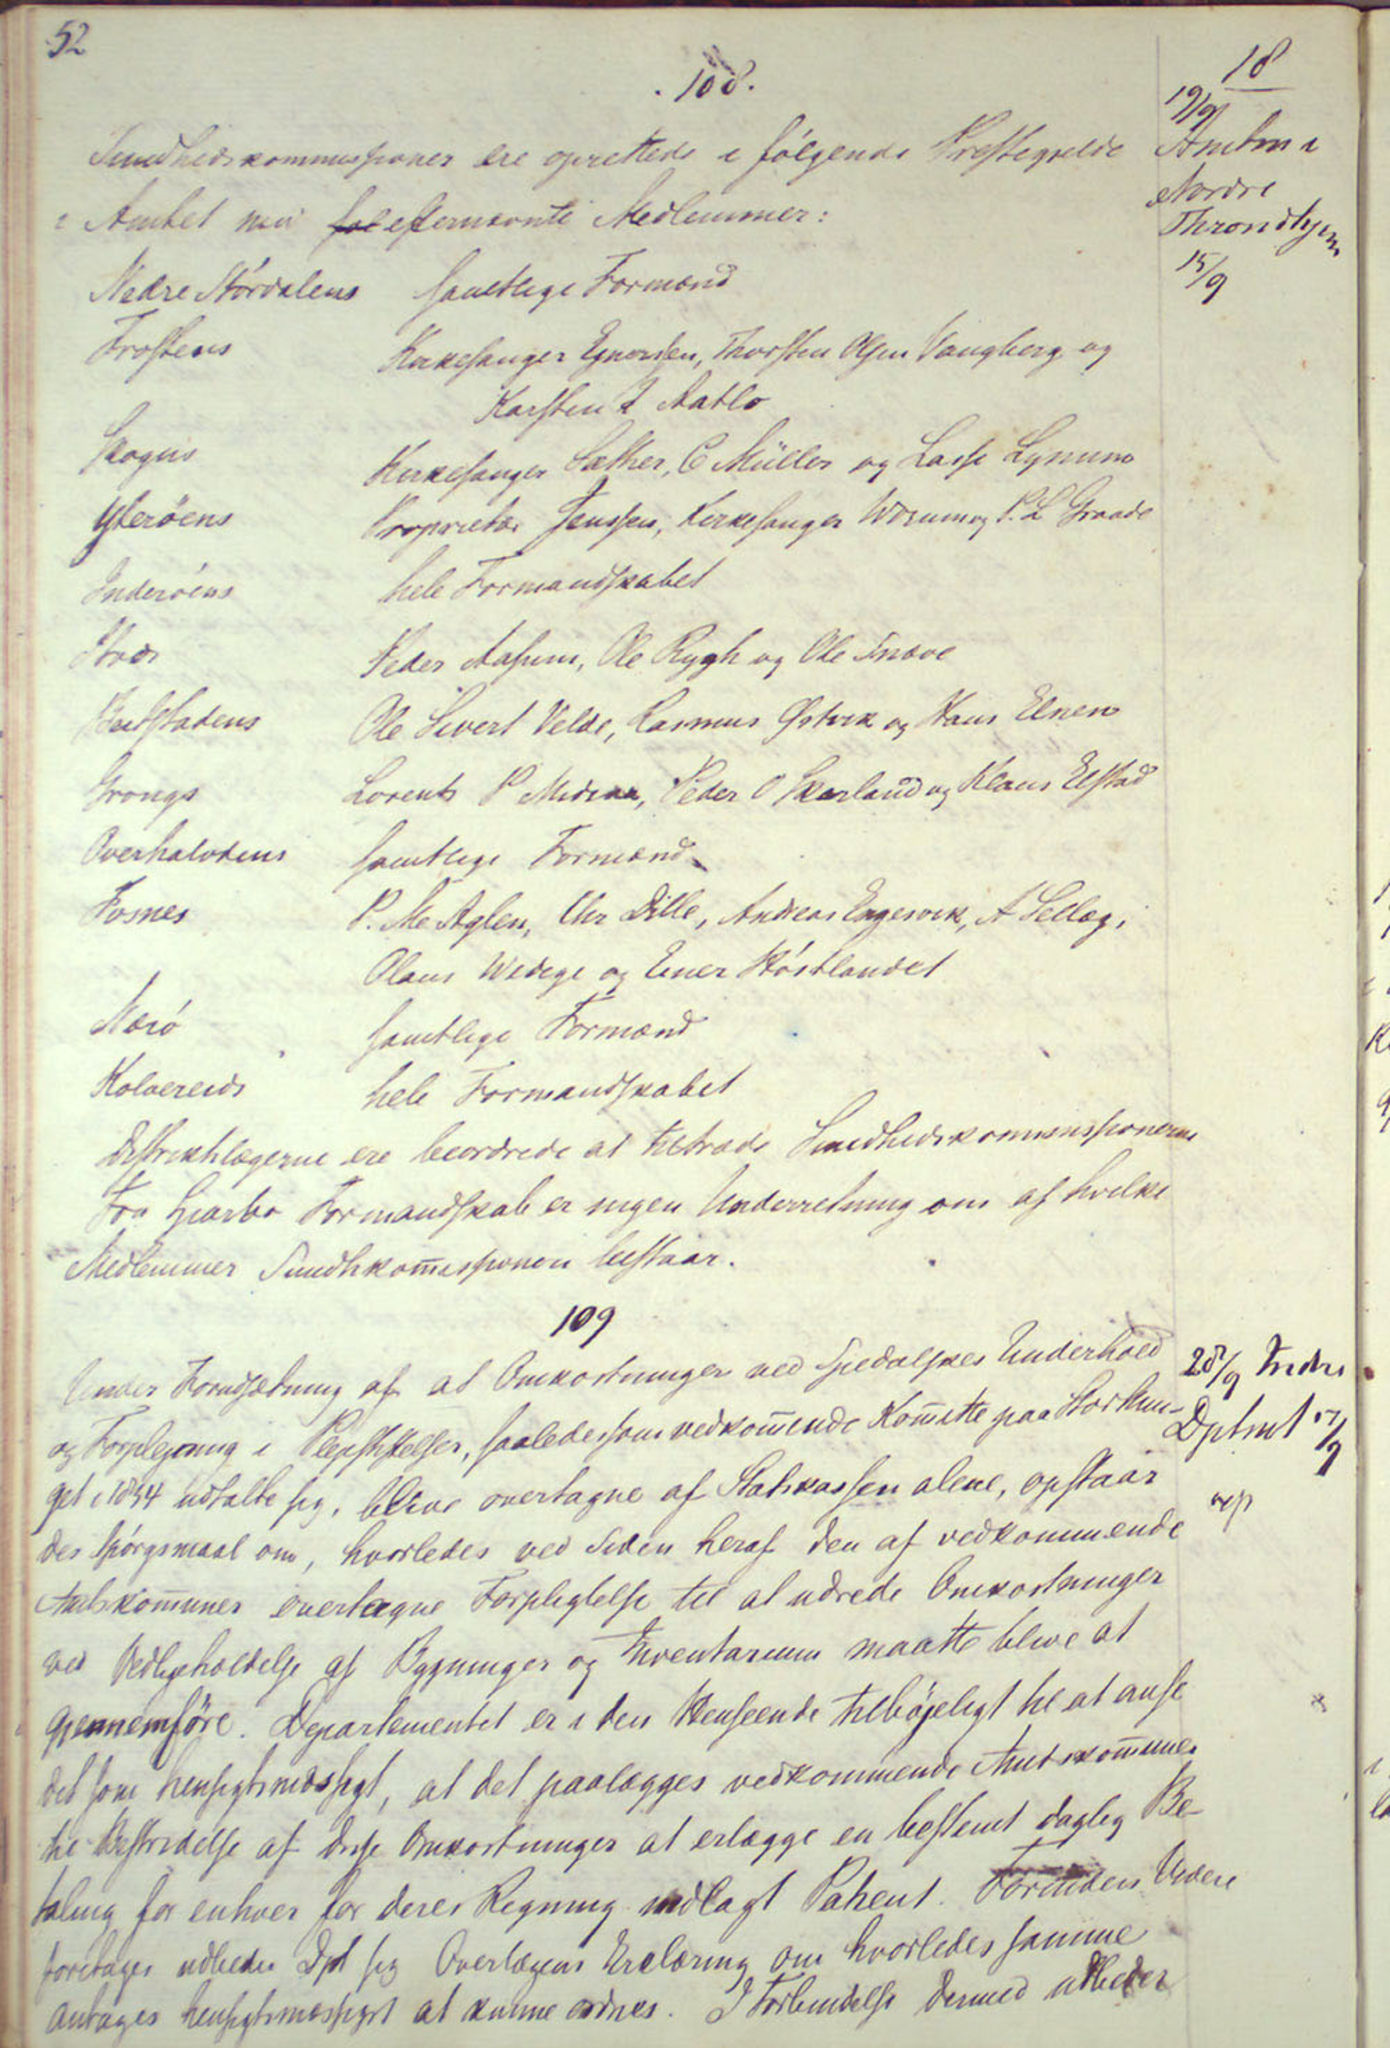 52
108.
18
19/9
Sundhedskommissioner ere oprettede i følgende Præstegjelde
Amtm i
Nordre
i Amtet med fol efternævnte Medlemmer:
Throndhjem
15/9
Nedre Størdalens samtlige Formænd
Frostens Kirkesanger Ejnersen, Thorsten Olsen Vangberg og
Karsten Aatlo
Skogns Kirkesanger Sæther, C Müller og Lasse Lynum
Yterøens Proprietær Jenssen, Kirkesanger Wisum og P. L Graade
Inderøens hele Formandskabet
Stod Peder Aasum, Ole Rygh og Ole Snæve
Beitstadens Ole Sivert Velde, Rasmus Østvik og Hans Elnen
Grongs Lorents P Mediaa, Peder O Skarland og Klaus Elstad
Overhalvdens samtlige Formænd
Fosnes P. Me Aglen, Chr Dille, Andreas Engesvik, A Sellæg,
Olaus Wedege og Einer Höstlandet
Nærö samtlige Formænd
Kolvereids hele Formandskabet
Distriktslægerne ere beordrede at tiltræde Sundhedskommissionerne
Fra Formandskab er ingen Underretning om af hvilke
Medlemmer Sundhkommissionen bestaar.
109
Under Forudsætning af at Omkostninger ved Spedalskes Underhold
28/9 Indre
og Forpleining i Pleiestiftelser, saaledes som vedkommende Komitte paa Storthin-
Dptmt 17/9
get i 1854 udtalte sig, blive overtagne af Statskassen alene, opstaar
exp
der Spörgsmaal om, hvorledes ved Siden heraf den af vedkommende
Amtskommuner overtagne Forpligtelse til at udrede Omkostninger
ved Vedligeholdelse af Bygninger og Inventarium maatte blive at
gjennemföre. Departementet er i den Henseende tilböjeligt til at anse
det som hensigtsmæssigt, at det paalægges vedkommende Amtskommuner
til Bestridelse af disse Omkostninger at erlægge en bestemt daglig Be-
taling for enhver for deres Regning indlagt Patient. Forinden Videre
foretages udbeder Dpt sig Overlægens Erclæring om hvorledes samme
antages hensigtsmæssigst at kunne ordnes. I Forbindelse dermed udbeder